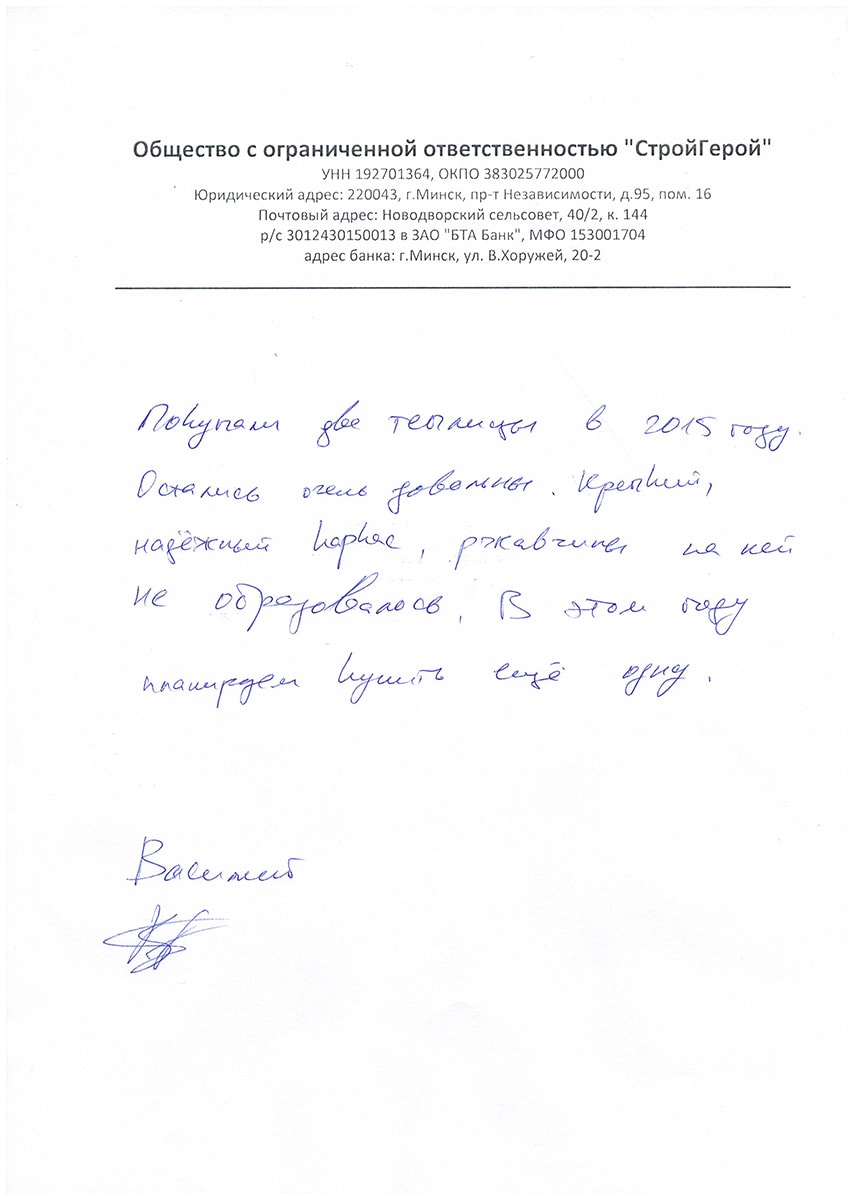 Общество с ограниченной ответственностью "СтройГерой"
УНН 192701364, ОКПО 383025772000
Юридический адрес: 220043, г.Минск, пр-т Независимости, д.95, пом. 16
Почтовый адрес: Новодворский сельсовет, 40/2, к. 144
р/с 3012430150013 в ЗАО "БТА Банк", МФО 153001704
адрес банка: г.Минск, ул. В.Хоружей, 20-2
Покупали две теплицы в 2015 году.
Остались очень довольны. Крепкий,
надёжный каркас, ржавчины на ней
не образовалось. В этом году
планируем купить ещё одну.